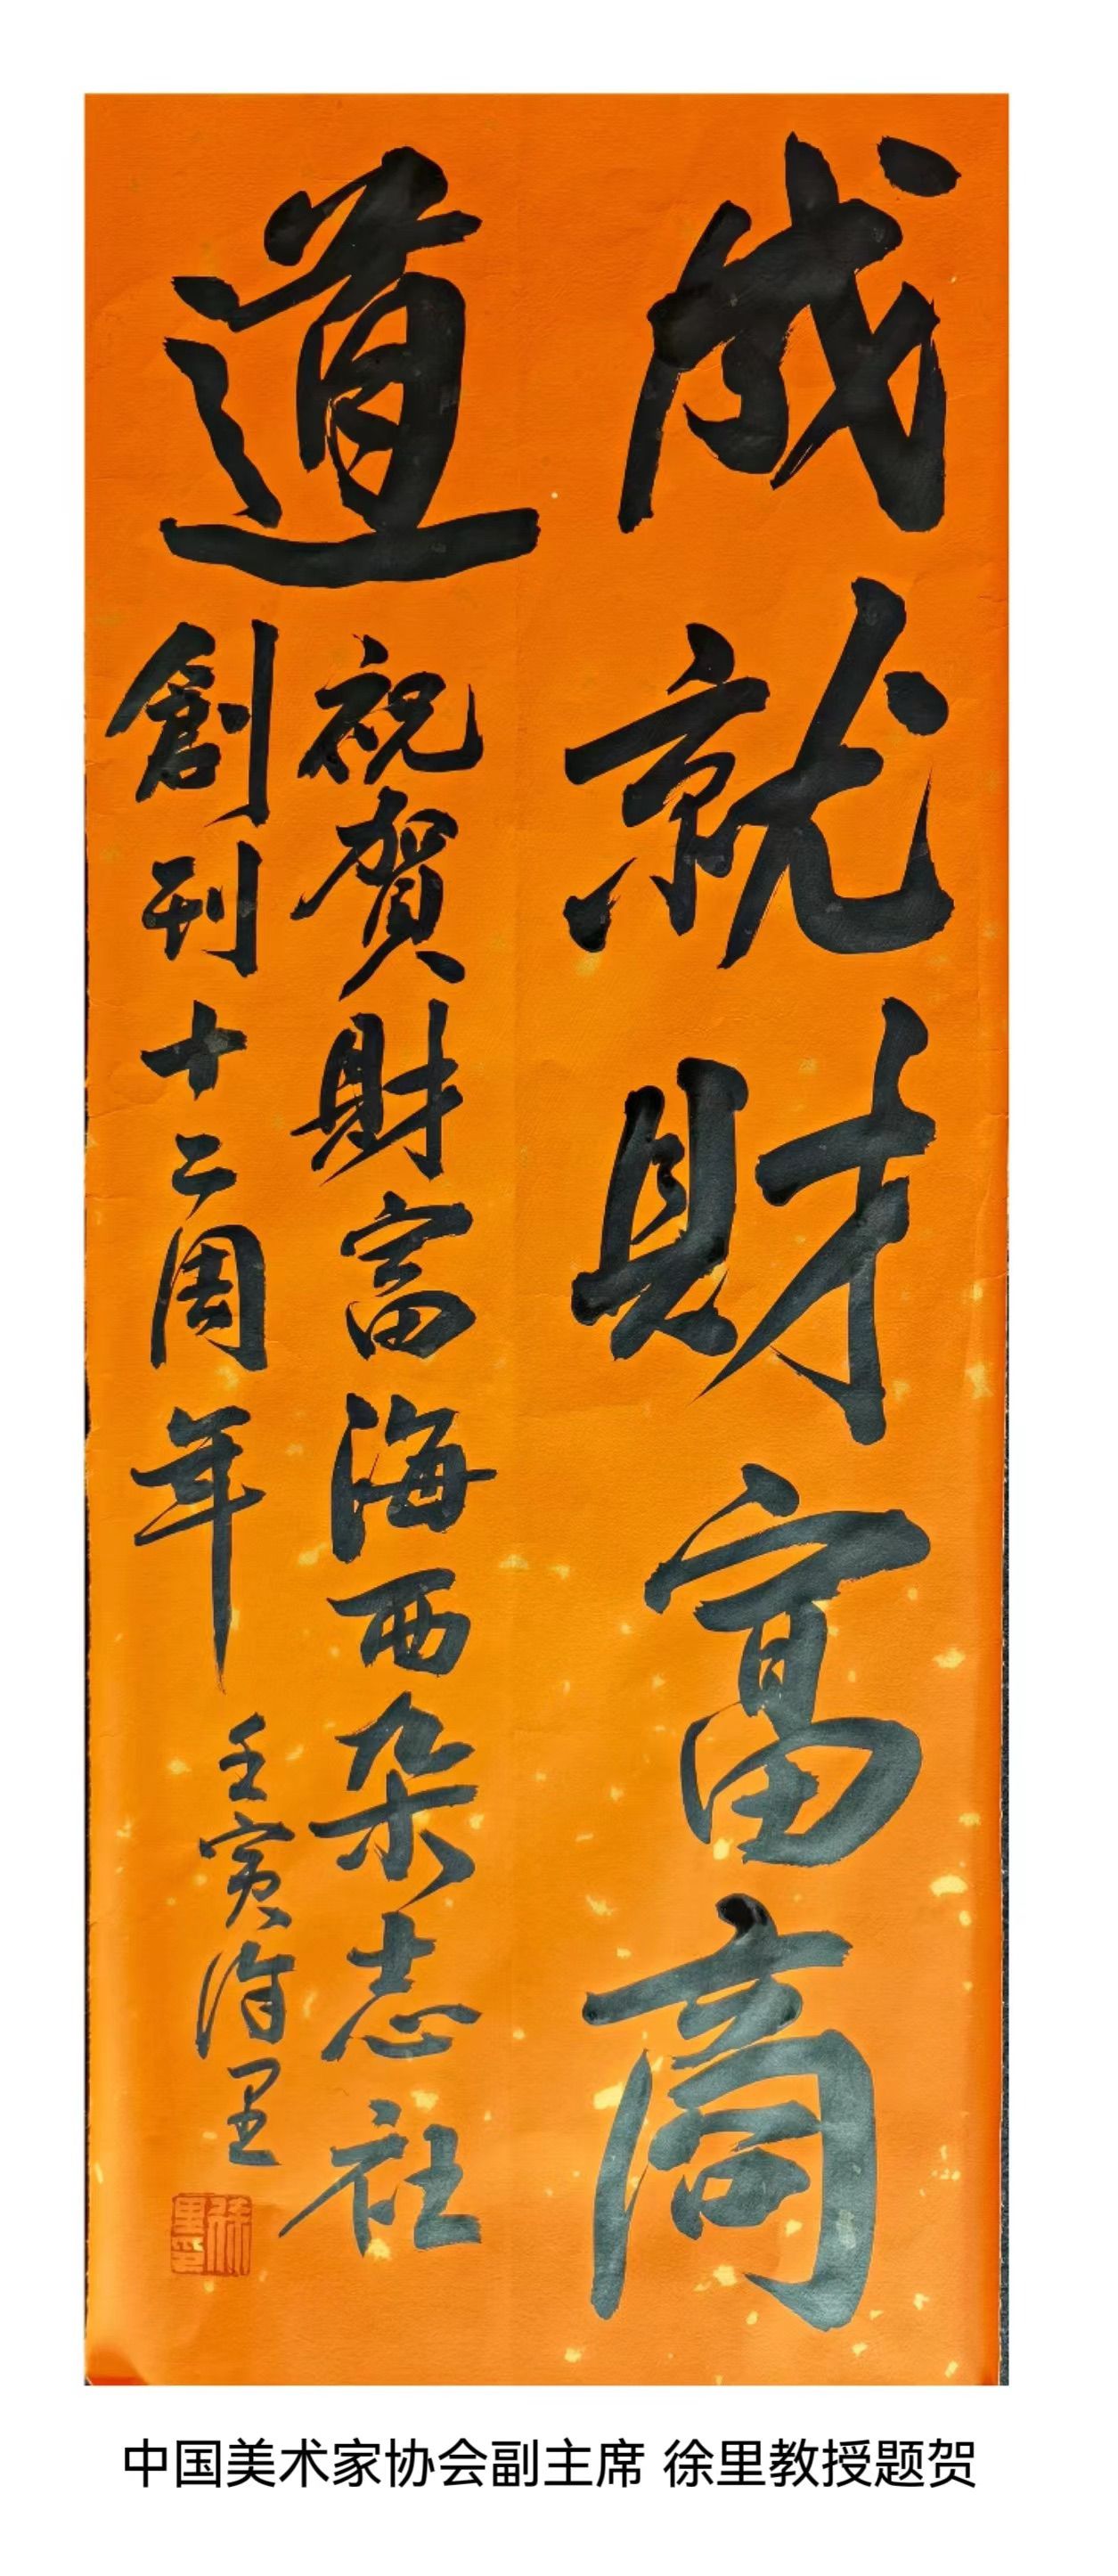 成就財富商
道
祝賀財富海西杂志社
創刊十二周年
壬寅徐里
徐里印
中国美术家协会副主席 徐里教授题贺